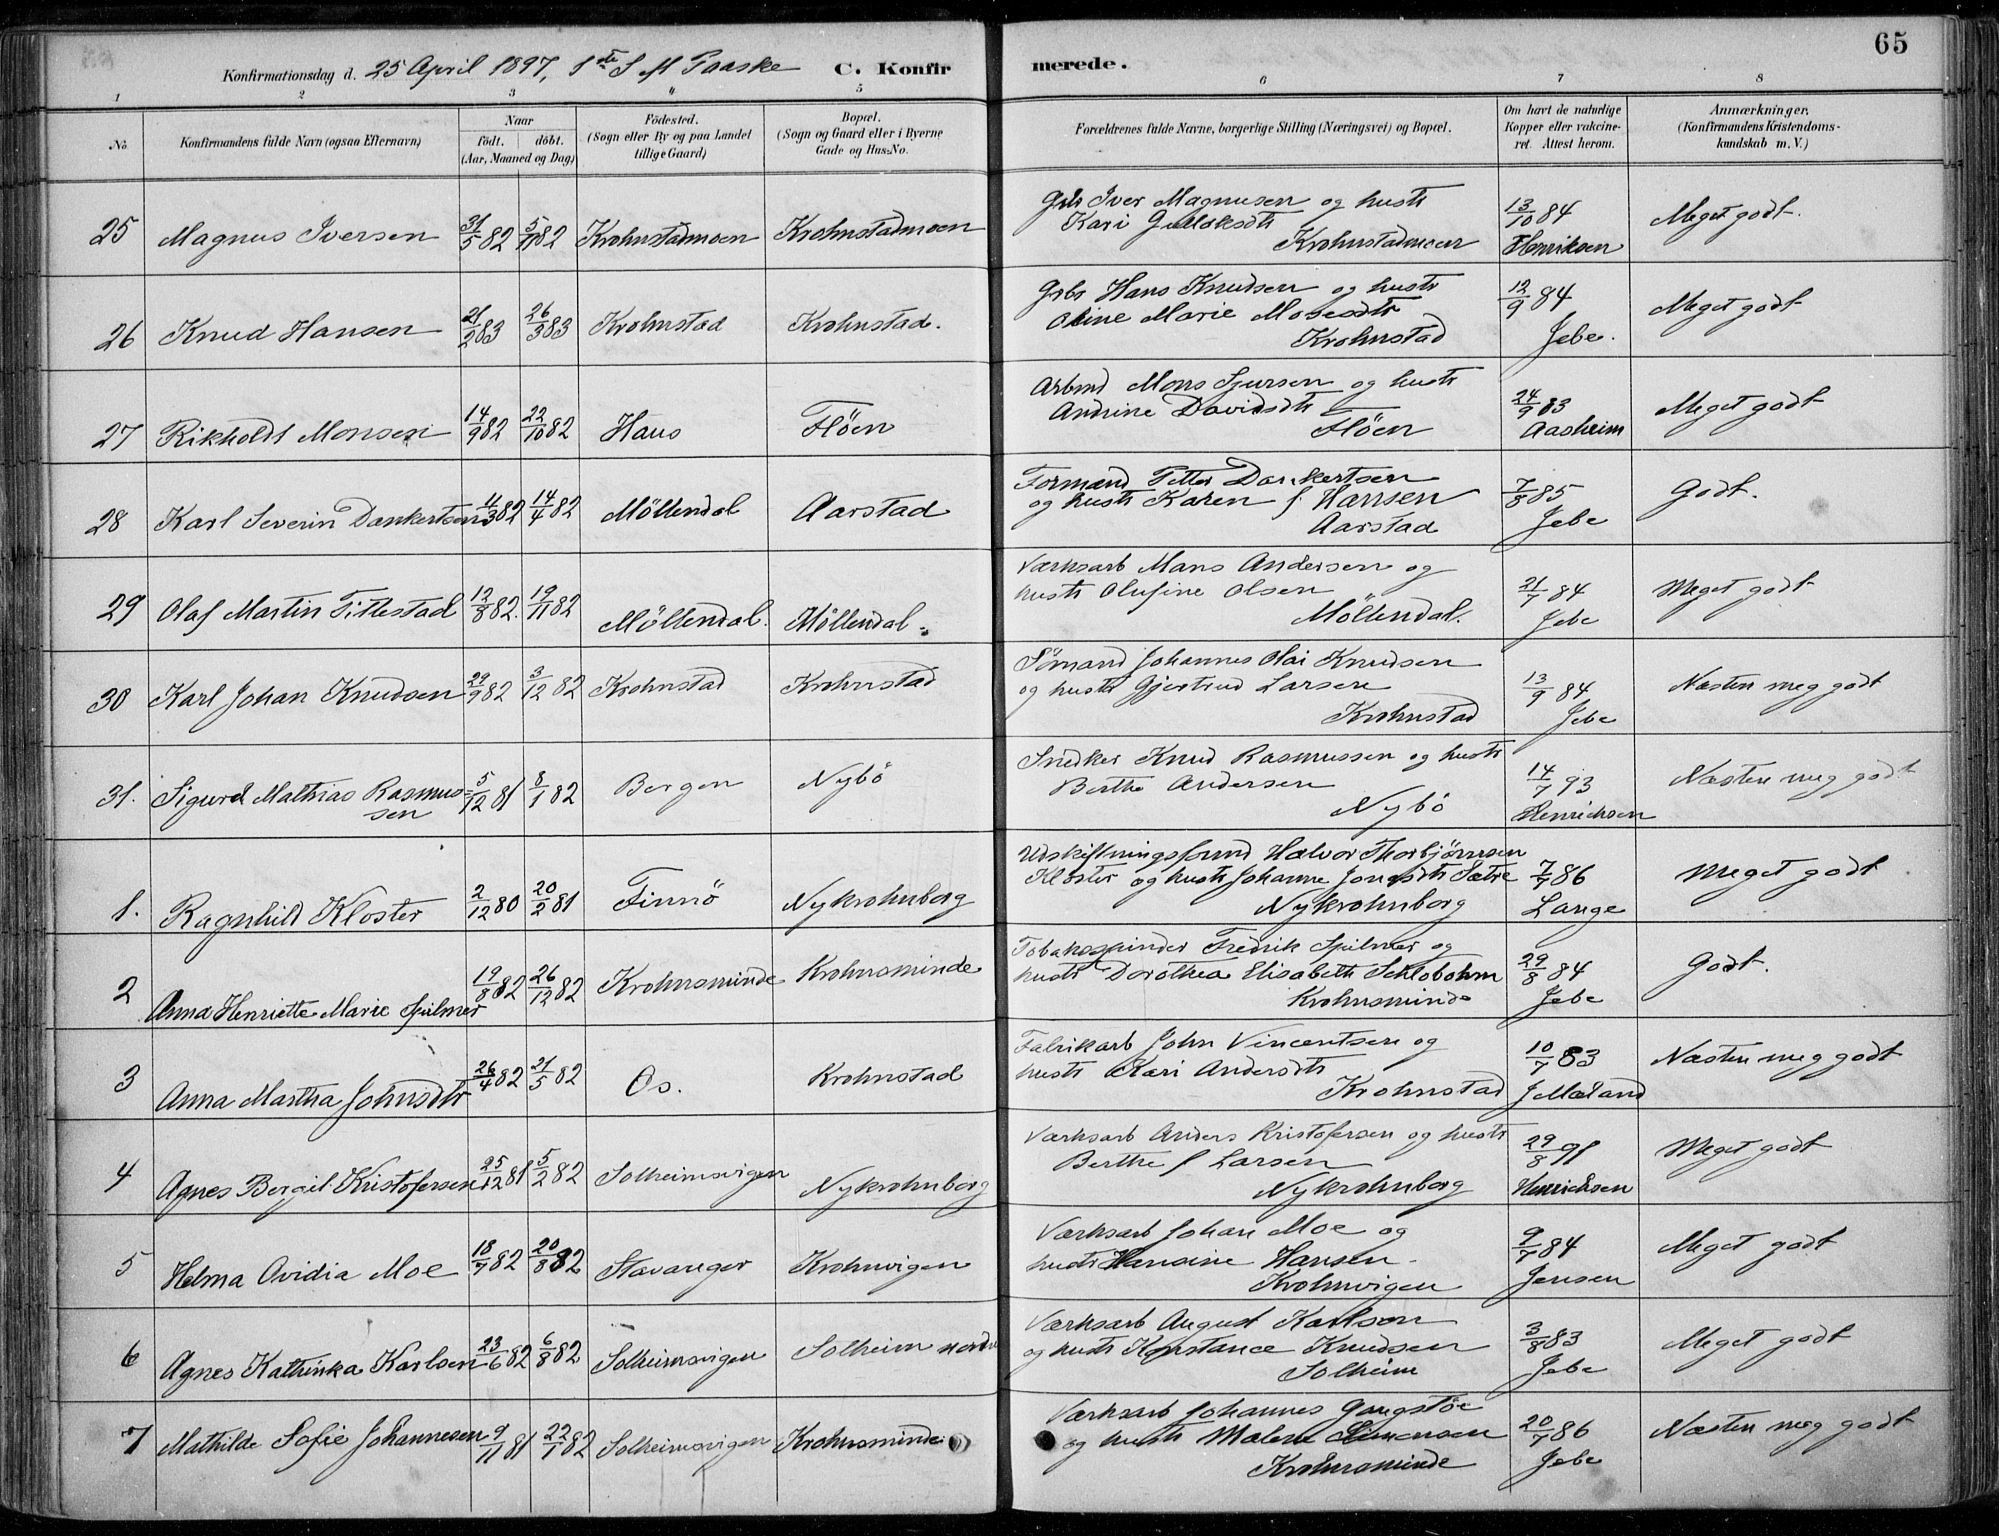 65
Konfirmationsdag d. 25 April 1897, 1ste S M Paaske C. Konfirmerede.
1 2 3 4 5 6 7 8
No. Konfirmandens fulde Navn (ogsaa Efternavn) Naar födt. döbt. (Aar, Maaned og Dag) Födested. (Sogn eller By og paa Landet tillige Gaard) Bopæl. (Sogn og Gaard eller i Byerne Gade og Hus-No. Forældrenes fulde Navne, borgerlige Stilling (Næringsvei) og Bopæl. Om havt de naturlige Kopper eller vakcineret. Attest herom. Anmærkninger. (Konfirmandens Kristendomskundskab m. V.)
25 Magnus Iversen 31/5 82 5/11 82 Krohnstadmoen Krohnstadmoen
Iver Magnusen og hustr
Kari
Krohnstadmoen
13/10 84 Henriksen Meget godt.
26 Knud Hansen 21/2 83 26/3 83 Krohnstad Krohnstad.
Gbr Hans Knudsen og hustr
Oline Marie Monsdtr
Krohnstad
12/9 84 Jebe. Meget godt
27 Rikholdt Monsen 14/9 82 22/10 82 Haus Flöen
Arbmd Mons Sjursen og hustr
Andrine Davidsdtr
Flöen
24/9 83 Aasheim Meget godt
28 Karl Severin Dankertsen 11/3 82 14/4 82 Möllendal Aarstad
Formand Petter Dankertsen
og hustr Karen f Hansen
Aarstad
7/8 85 Jebe Godt.
29 Olaf Martin Tittestad 12/8 82. 19/11 82 Möllendal. Möllendal.
Værksarb Mans Andersen og
hustr Olufine Olsen
Möllendal.
21/7 84 Jebe Meget godt
30 Karl Johan Knudsen 29/9 82 3/12 82 Krohnstad Krohnstad
Sömand Johannes Olai Knudsen
og hustr Gjertrud Larsen
Krohnstad
13/9 84 Jebe Næsten meg godt
31. Sigurd Mathias Rasmussen 5/12 81 8/1 82 Bergen Nybö
Snedker Knud Rasmussen og hustr
Berthe Andersen
Nybö
14/7 93 Henrichsen Næsten meg godt
1. Ragnhild Kloster 2/12 80 20/2 81 Finnö Nykrohnborg
Udskiftningsformd Halvor Thorbjörnsen
Kloster og hustr Johanne Jonasdtr Sætre
Nykrohnborg
7/7 86 Lange Meget godt
2 Anna Henriette Marie Spilmer 19/8 82 26/12 82 Krohnsminde Krohnsminde
Tobakspinder Fredrik Spilmer og
hustr Dorothea Elisabeth Schlobohm
Krohnsminde
29/8 84 Jebe Godt.
3 Anna Martha Johnsdtr 26/4 82 21/5 82 Os. Krohnstad
Fabrikarb John Vincentsen og
hustr Kari Andersdtr
Krohnstad
10/7 83 J Mæland Næsten meg godt
4 Agnes Bergit Kristofersen 25/12 81 5/2 82 Solheimsvigen Nykrohnborg
Værksarb Anders Kristofersen og hustr
Berthe f Larsen
Nykrohnborg
29/8 91 Henrichsen Meget godt
5 Helma Ovidia Moe 18/7 82 20/8 82 Stavanger Krohnvigen
Værksarb Johan Moe og
hustr Hansine Hansen.
Krohnvigen
9/7 84 Jensen Meget godt
6 Agnes Kathinka Karlsen 23/6 82 6/8 82 Solheimsvigen Solheim nordre
Værksarb August Karlson
og hustr Konstance Knudsen
Solheim
3/8 83 Jebe Meget godt
7 Mathilde Sofie Johannesen 9/11 81 22/1 82 Solheimsvigen Krohnsminde
Værksarb Johannes Gangstöe
og hustr Malene Simonsen
Krohnsminde
20/7 86 Jebe Næsten meg godt